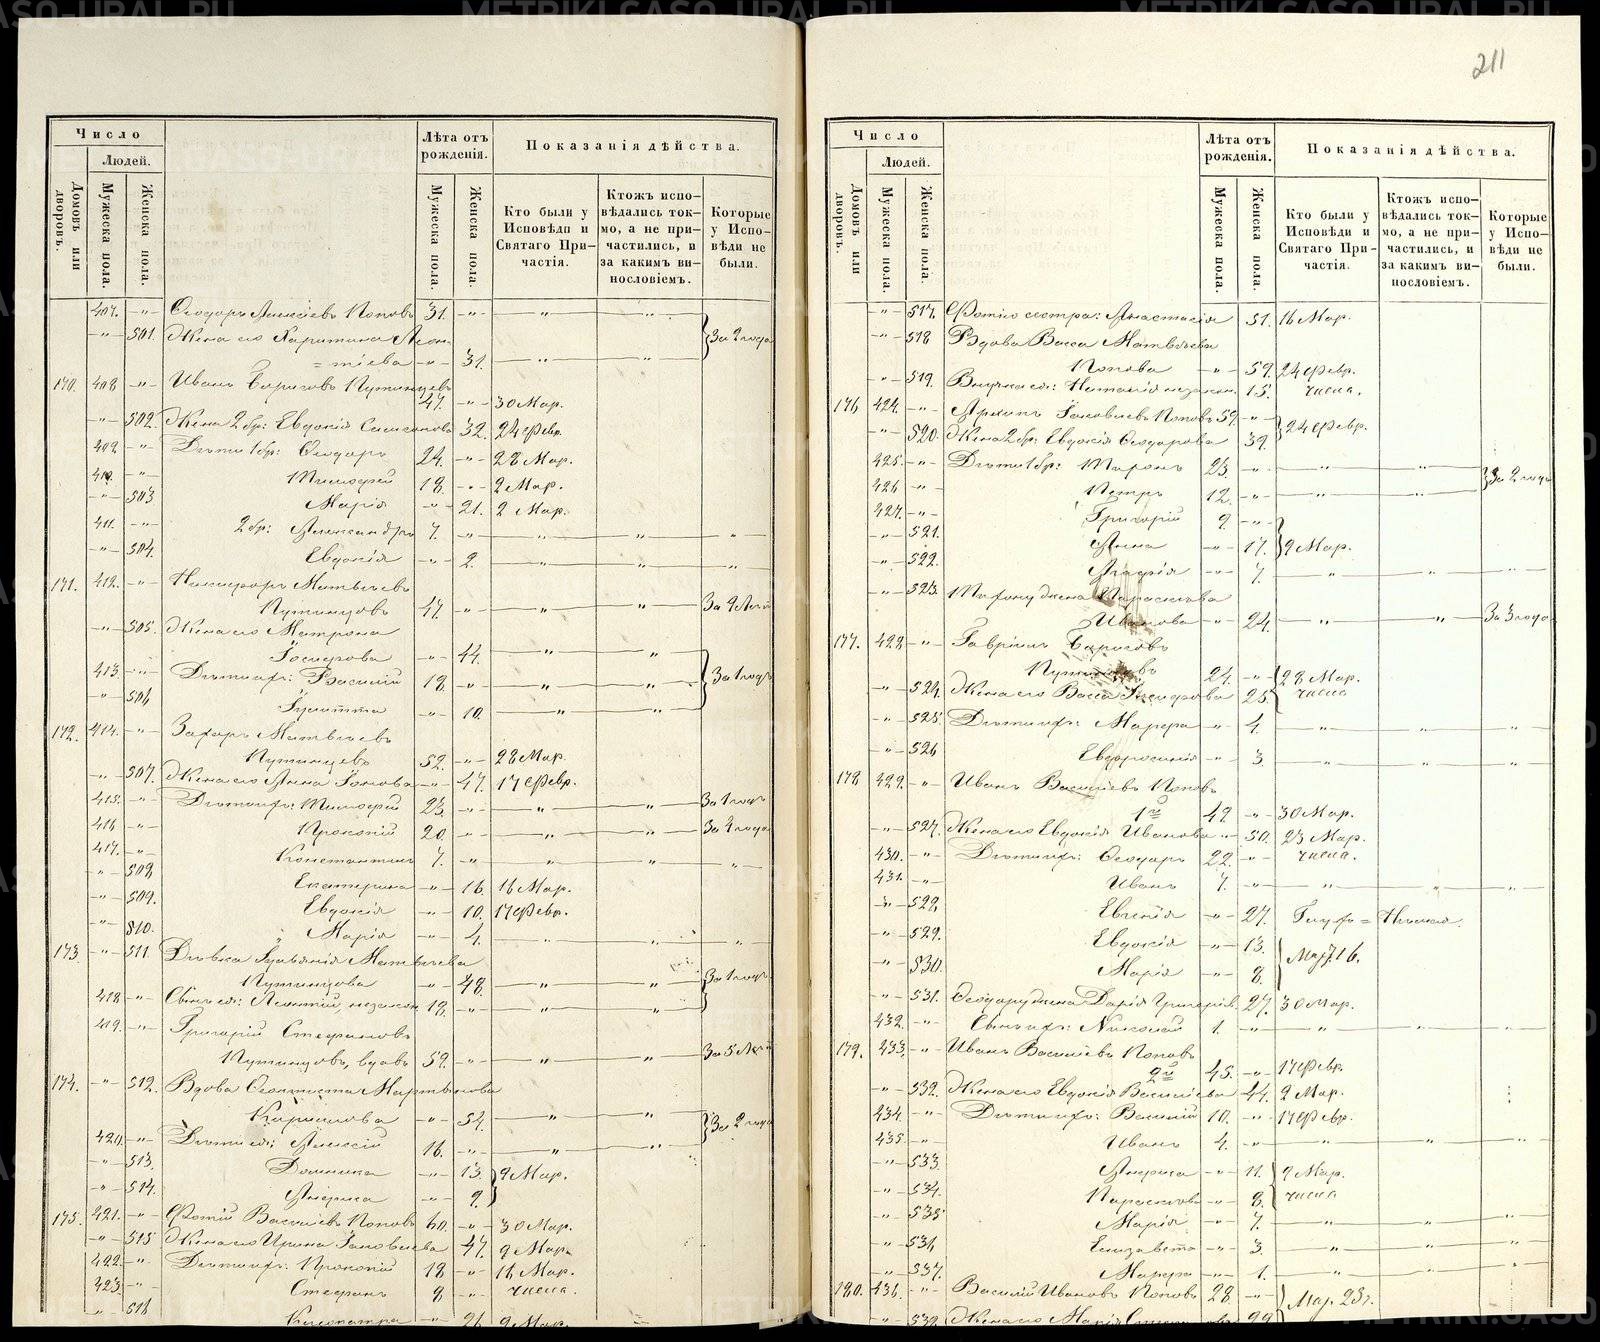 211
Число
Людей.
Домовъ или дворовъ.
Мужеска пола.
Женска пола.
Лѣта отъ рожденія.
Мужеска пола.
Женска пола.
Показанія дѣйства.
Кто были у Исповѣди и Святаго Причастія.
Ктожъ исповѣдались токмо, а не причастились, и за какимъ винословіемъ.
Которые у Исповѣди не были.
407. -"- Ѳеодоръ Алексіевъ Поповъ 31. -"- " "
-"- 501. Жена его Харитина Леон За 2 года
=тіева -"- 31. " "
170. 408 -"- Иванъ Путинцевъ
47. -"- 30 Мар.
-"- 502. Жена 2 бр: Евдокія Симеонова 32. 24 Февр.
409. -"- Дѣти 1 бр: Ѳеодоръ 24. -"- 28 Мар.
410. -"- Тимоѳей 18. -"- 2 Мар.
-"- 503 Марія -"- 21. 2 Мар.
411. -"- 2 бр: Александръ 7. -"- " " "
-"- 504. Евдокія -"- 2. " " "
171. 412. -"- Никифоръ Матвѣевъ
Путинцовъ 47. -"- " "
-"- 505. Жена его Матрона
-"- 44. " "
413. -"- Дѣти ихъ: Василій 18. -"- " " За 1 годъ
-"- 506 Іулитта -"- 10. " "
172. 414. -"- Захаръ Матвѣевъ
Путинцевъ 52. -"- 28 Мар.
-"- 507. Жена его Анна -"- 47. 17 Февр.
415. -"- Дѣти ихъ: Тимоѳей 23. -"- " " За 1 годъ
416 -"- Прокопій 20. -"- " "
417. -"- Константинъ 7. -"- " " "
-"- 508 Екатерина -"- 16. 16 Мар.
-"- 509. Евдокія -"- 10. 17 Февр.
-"- 510. Марія -"- 4. " " "
173. -"- 511. Дѣвка Матвѣева
Путинцова -"- 48. " " За 1 годъ
418. -"- Сынъ ея: Леонтій, незакон 18. -"- " "
419. -"- Григорій Стефановъ
Путинцовъ, вдовъ 59. -"- " " За 5 Лѣтъ
174. -"- 512. Вдова Ѳеоктиста Мартинова
-"- 54. " " За 2 года
420. -"- Дѣти ея: Алексій 16. -"- " "
-"- 513. Домника -"- 13. 9 Мар.
-"- 514. Анфиса -"- 9.
175. 421. -"- Фотій Василіевъ Поповъ 60. -"- 30 Мар.
-"- 515 Жена его Ирина Іаковлева 47. 9 Мар.
422. -"- Дѣти ихъ: Прокопій 18 -"- 16 Мар.
423. -"- Стефанъ 8 -"- числа.
-"- 516 Клеопатра -"- 26 9 Мар.
Число
Людей.
Домовъ или дворовъ.
Мужеска пола.
Женска пола.
Лѣта отъ рожденія.
Мужеска пола.
Женска пола.
Показанія дѣйства.
Кто были у Исповѣди и Святаго Причастія.
Ктожъ исповѣдались токмо, а не причастились, и за какимъ винословіемъ.
Которые у Исповѣди не были.
-"- 517. Фотію сестра: Анастасія 51. 16 Мар.
-"- 518 Вдова Васса Матвѣева
Попова -"- 59. 24 Февр.
-"- 519. Внучка ея: Наталія незакон. 15. числа.
176 424. -"- Архипъ Іаковлевъ Поповъ 59. -"-
-"- 520. Жена 2 бр: Евдокія Ѳеодорова 39. 24 Февр.
425. -"- Дѣти 1 бр: 23. -"- " "
426 -"- Петръ 12. -"- " " За 2 года
427. -"- Григорій 9. -"-
-"- 521. Анна -"- 17. 9 Мар.
-"- 522. -"- 7. " " "
-"- 523. жена Параскева
Иванова -"- 24. " " За 3 года
177. 428 -"- Гавріилъ
24. -"- 28 Мар.
-"- 524. Жена его Васса 25. числа
-"- 525. Дѣти ихъ: Марѳа -"- 4. " " "
-"- 526 Евфросинія -"- 3. " " "
178 429. -"- Иванъ Василіевъ Поповъ
1й 49. -"- 30 Мар.
-"- 527. Жена его Евдокія Иванова -"- 50. 23 Мар.
430. -"- Дѣти ихъ: Ѳеодоръ 22. -"- числа.
431. -"- Иванъ 7. -"- " " "
-"- 528. Евгенія -"- 27. Глухо=Нѣмая.
-"- 529. Евдокія -"- 13.
-"- 530. Марія -"- 8. Мар. 16.
-"- 531. Ѳеодору жена Дарія Григорiев. 27. 30 Мар.
432. -"- Сынъ ихъ: Николай 1. -"- " " "
179. 433. -"- Иванъ Василіевъ Поповъ
2й 45. -"- 17 Февр.
-"- 532. Жена его Евдокія Василіева 44. 2 Мар.
434. -"- Дѣти ихъ: Василій 10. -"- 17 Февр.
435. -"- Иванъ 4. -"- " " "
-"- 533. Анфиса -"- 11. 9 Мар.
-"- 534. Параскева -"- 8. числа
-"- 535 Марія -"- 7. " " "
-"- 536 Елизавета -"- 3. " " "
-"- 537. Марѳа -"- 1. " " "
180. 436. -"- Василій Ивановъ Поповъ 28. -"- Мар. 23.
-"- 538. Жена его Марія